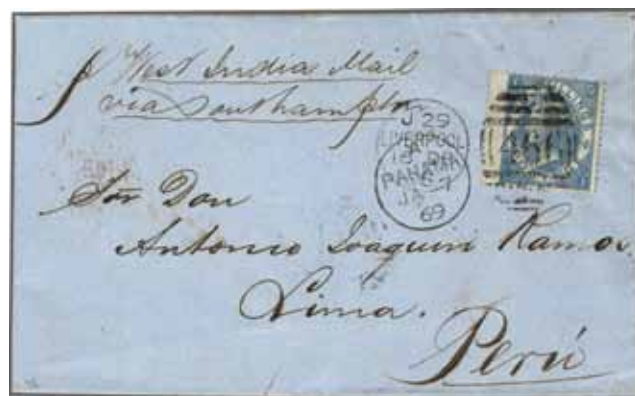 p West India Mail
via Southampton
J 29
LIVERPOOL
PANAMA
JA 7
69
466
Sor Don
Antonio Joaquin Ramos.
Lima.
Perú